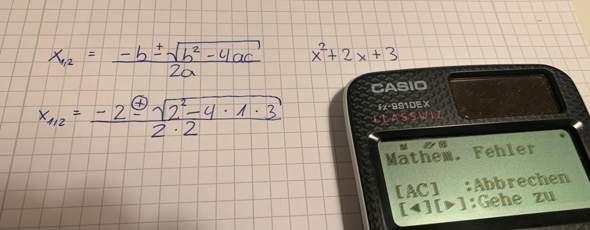 x₁,₂ = (-b ± √(b² - 4ac)) / 2a
x² + 2x + 3
x₁,₂ = (-2 ± √(2² - 4 · 1 · 3)) / 2 · 2
CASIO
fx-991DEX
CLASSWIZ
Mathem. Fehler
[AC] :Abbrechen
[◄][►]:Gehe zu